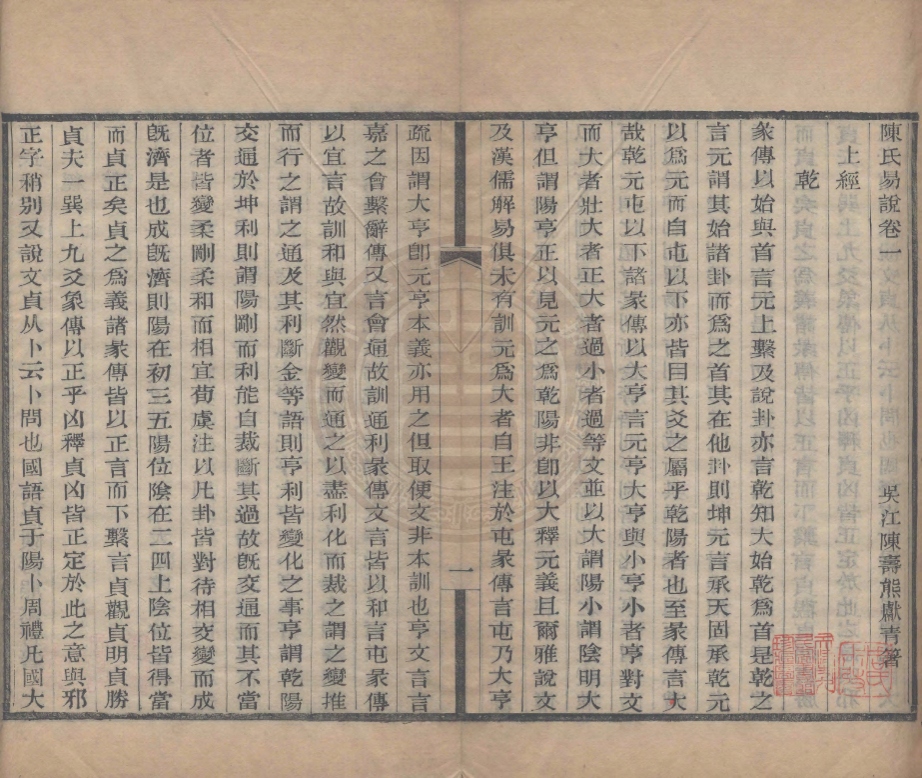 陳氏易說卷一
吳江陳壽熊獻青箸
上經
乾
彖傳以始與首言元上繫及說卦亦言乾知大始乾爲首是乾之
言元謂其始諸卦而爲之首其在他卦則坤元言承天固承乾元
以爲元而自屯以下亦皆目其爻之屬乎乾陽者也至彖傳言大
哉乾元屯以下諸彖傳以大亨言元亨大亨與小亨小者亨對文
而大者壯大者正大者過小者過等文並以大謂陽小謂陰明大
亨但謂陽亨正以見元之爲乾陽非卽以大釋元義且爾雅說文
及漢儒解易俱未有訓元爲大者自王注於屯彖傳言屯乃大亨
一
疏因謂大亨卽元亨本義亦用之但取便文非本訓也亨文言言
嘉之會繫辭傳又言會通故訓通利彖傳文言皆以和言屯彖傳
以宜言故訓和與宜然觀變而通之以盡利化而裁之謂之變推
而行之謂之通及其利斷金等語則亨利皆變化之事亨謂乾陽
交通於坤利則謂陽剛而利能自裁斷其過故旣交通而其不當
位者皆變柔剛和而相宜荀虞注以凡卦皆對待相交變而成
旣濟是也成旣濟則陽在初三五陽位陰在二四上陰位皆得當
而貞正矣貞之爲義諸彖傳皆以正言而下繫言貞觀貞明貞勝
貞夫一巽上九爻象傳以正乎凶釋貞凶皆正定於此之意與邪
正字稍別又說文貞从卜云卜問也國語貞于陽卜周禮凡國大